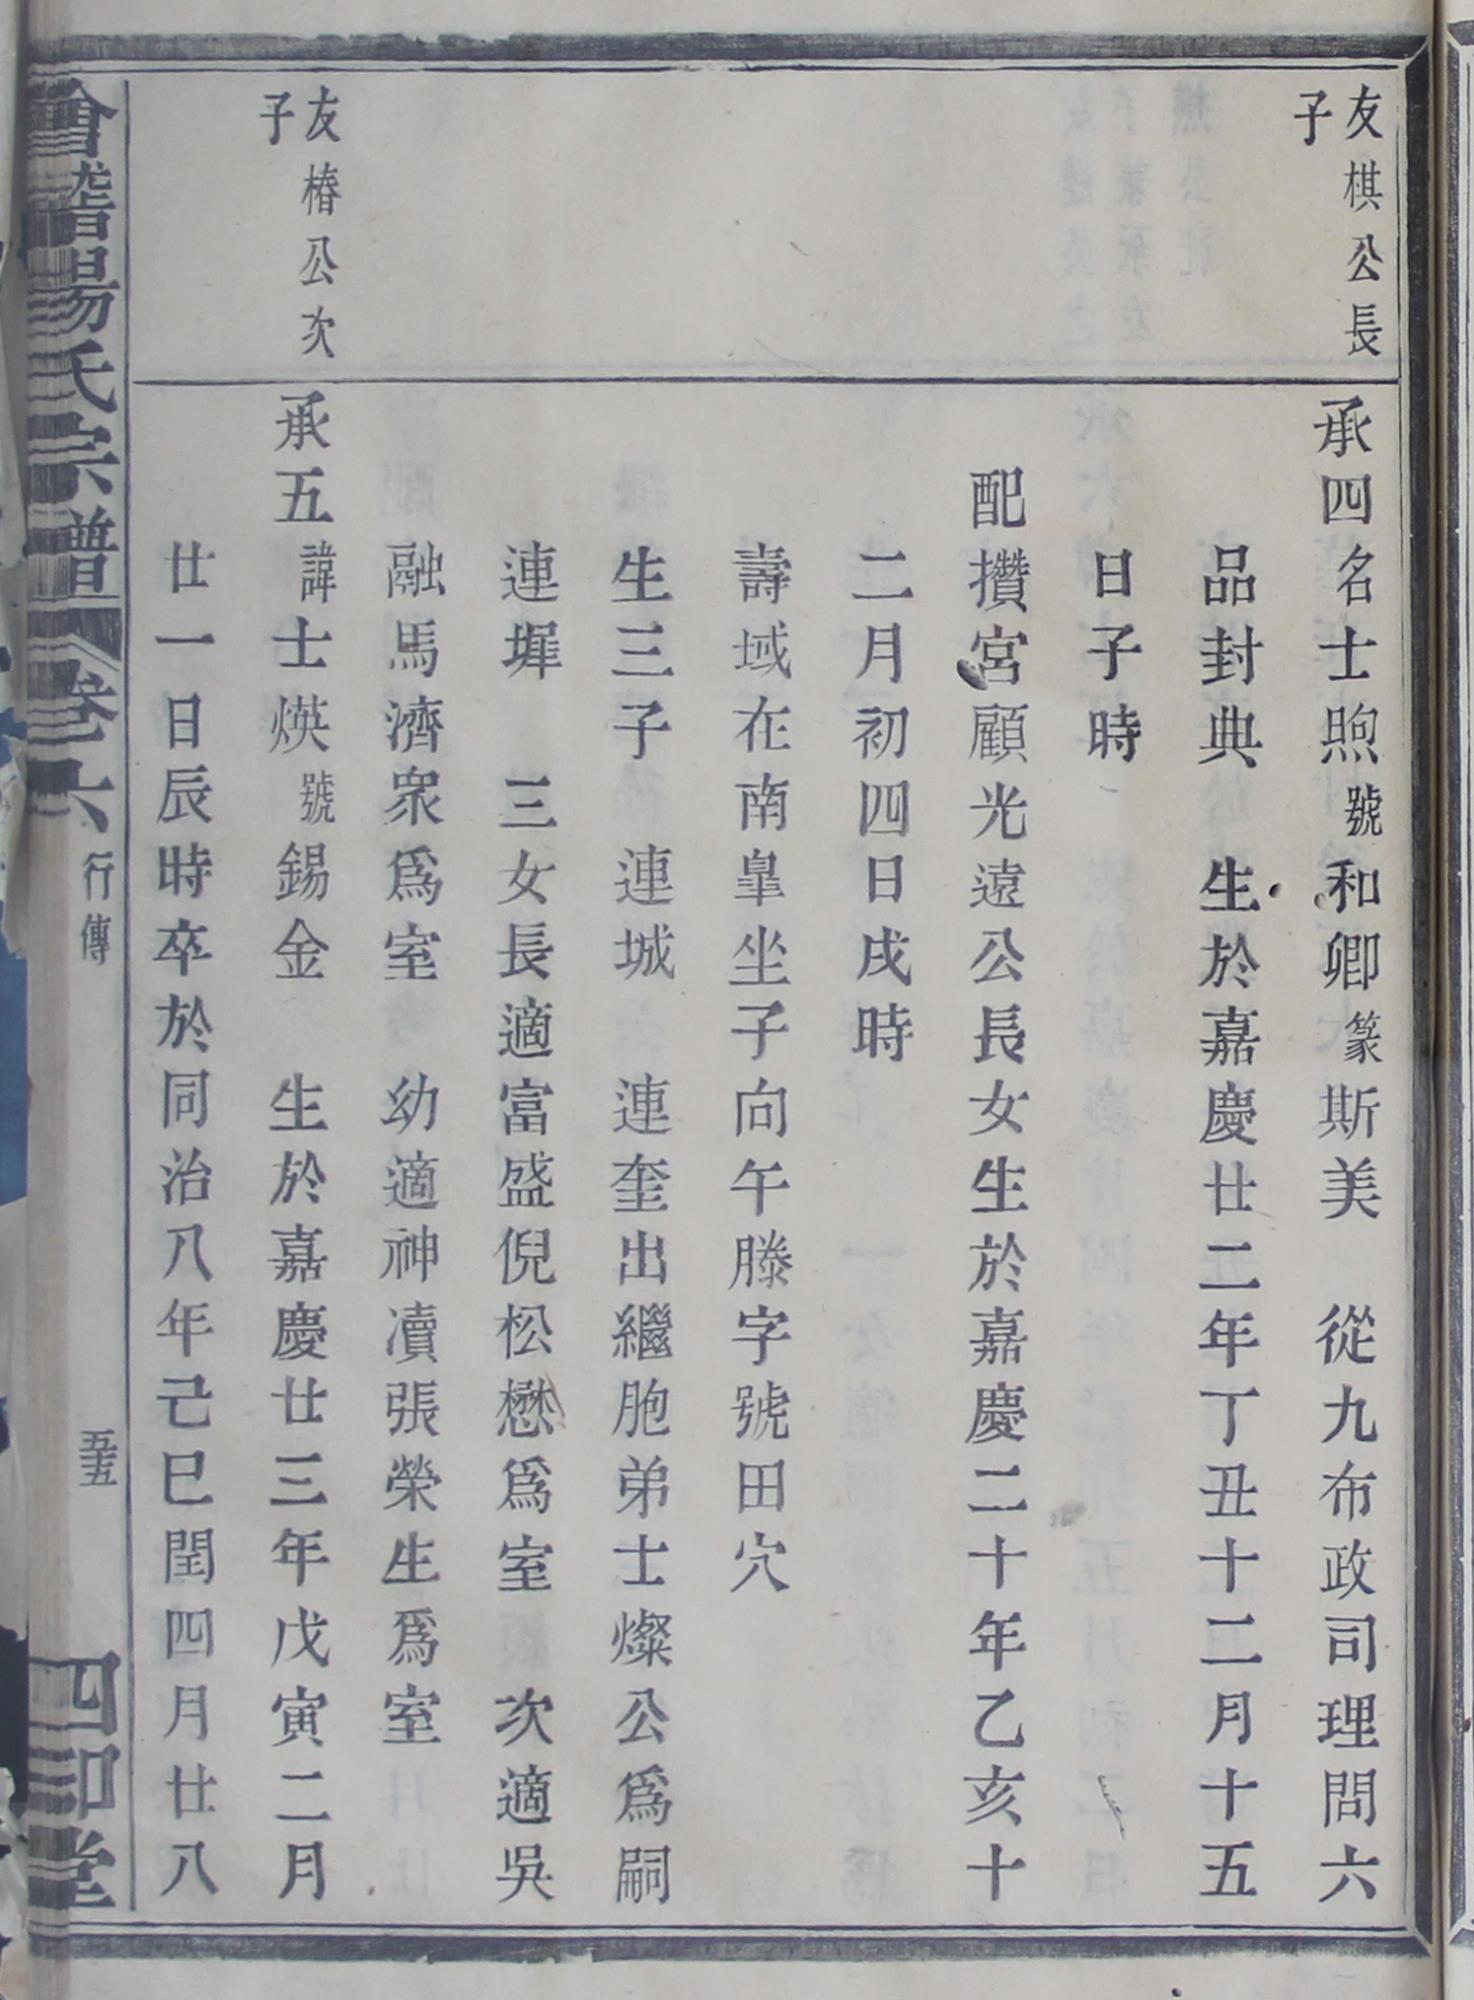 友棋公長
子
承四名士煦號和卿篆斯美　從九布政司理問六
品封典　生於嘉慶廿二年丁丑十二月十五
日子時
配攢宮顧光遠公長女生於嘉慶二十年乙亥十
二月初四日戌時
壽域在南臯坐子向午滕字號田穴
生三子　連城　連奎出繼胞弟士燦公爲嗣
連墀　三女長適富盛倪松懋爲室　次適吳
融馬濟衆爲室　幼適神凟張榮生爲室
友椿公次
子
承五諱士煐號錫金　生於嘉慶廿三年戊寅二月
廿一日辰時卒於同治八年己巳閏四月廿八
會稽楊氏宗譜 卷六 行傳 五五 四知堂